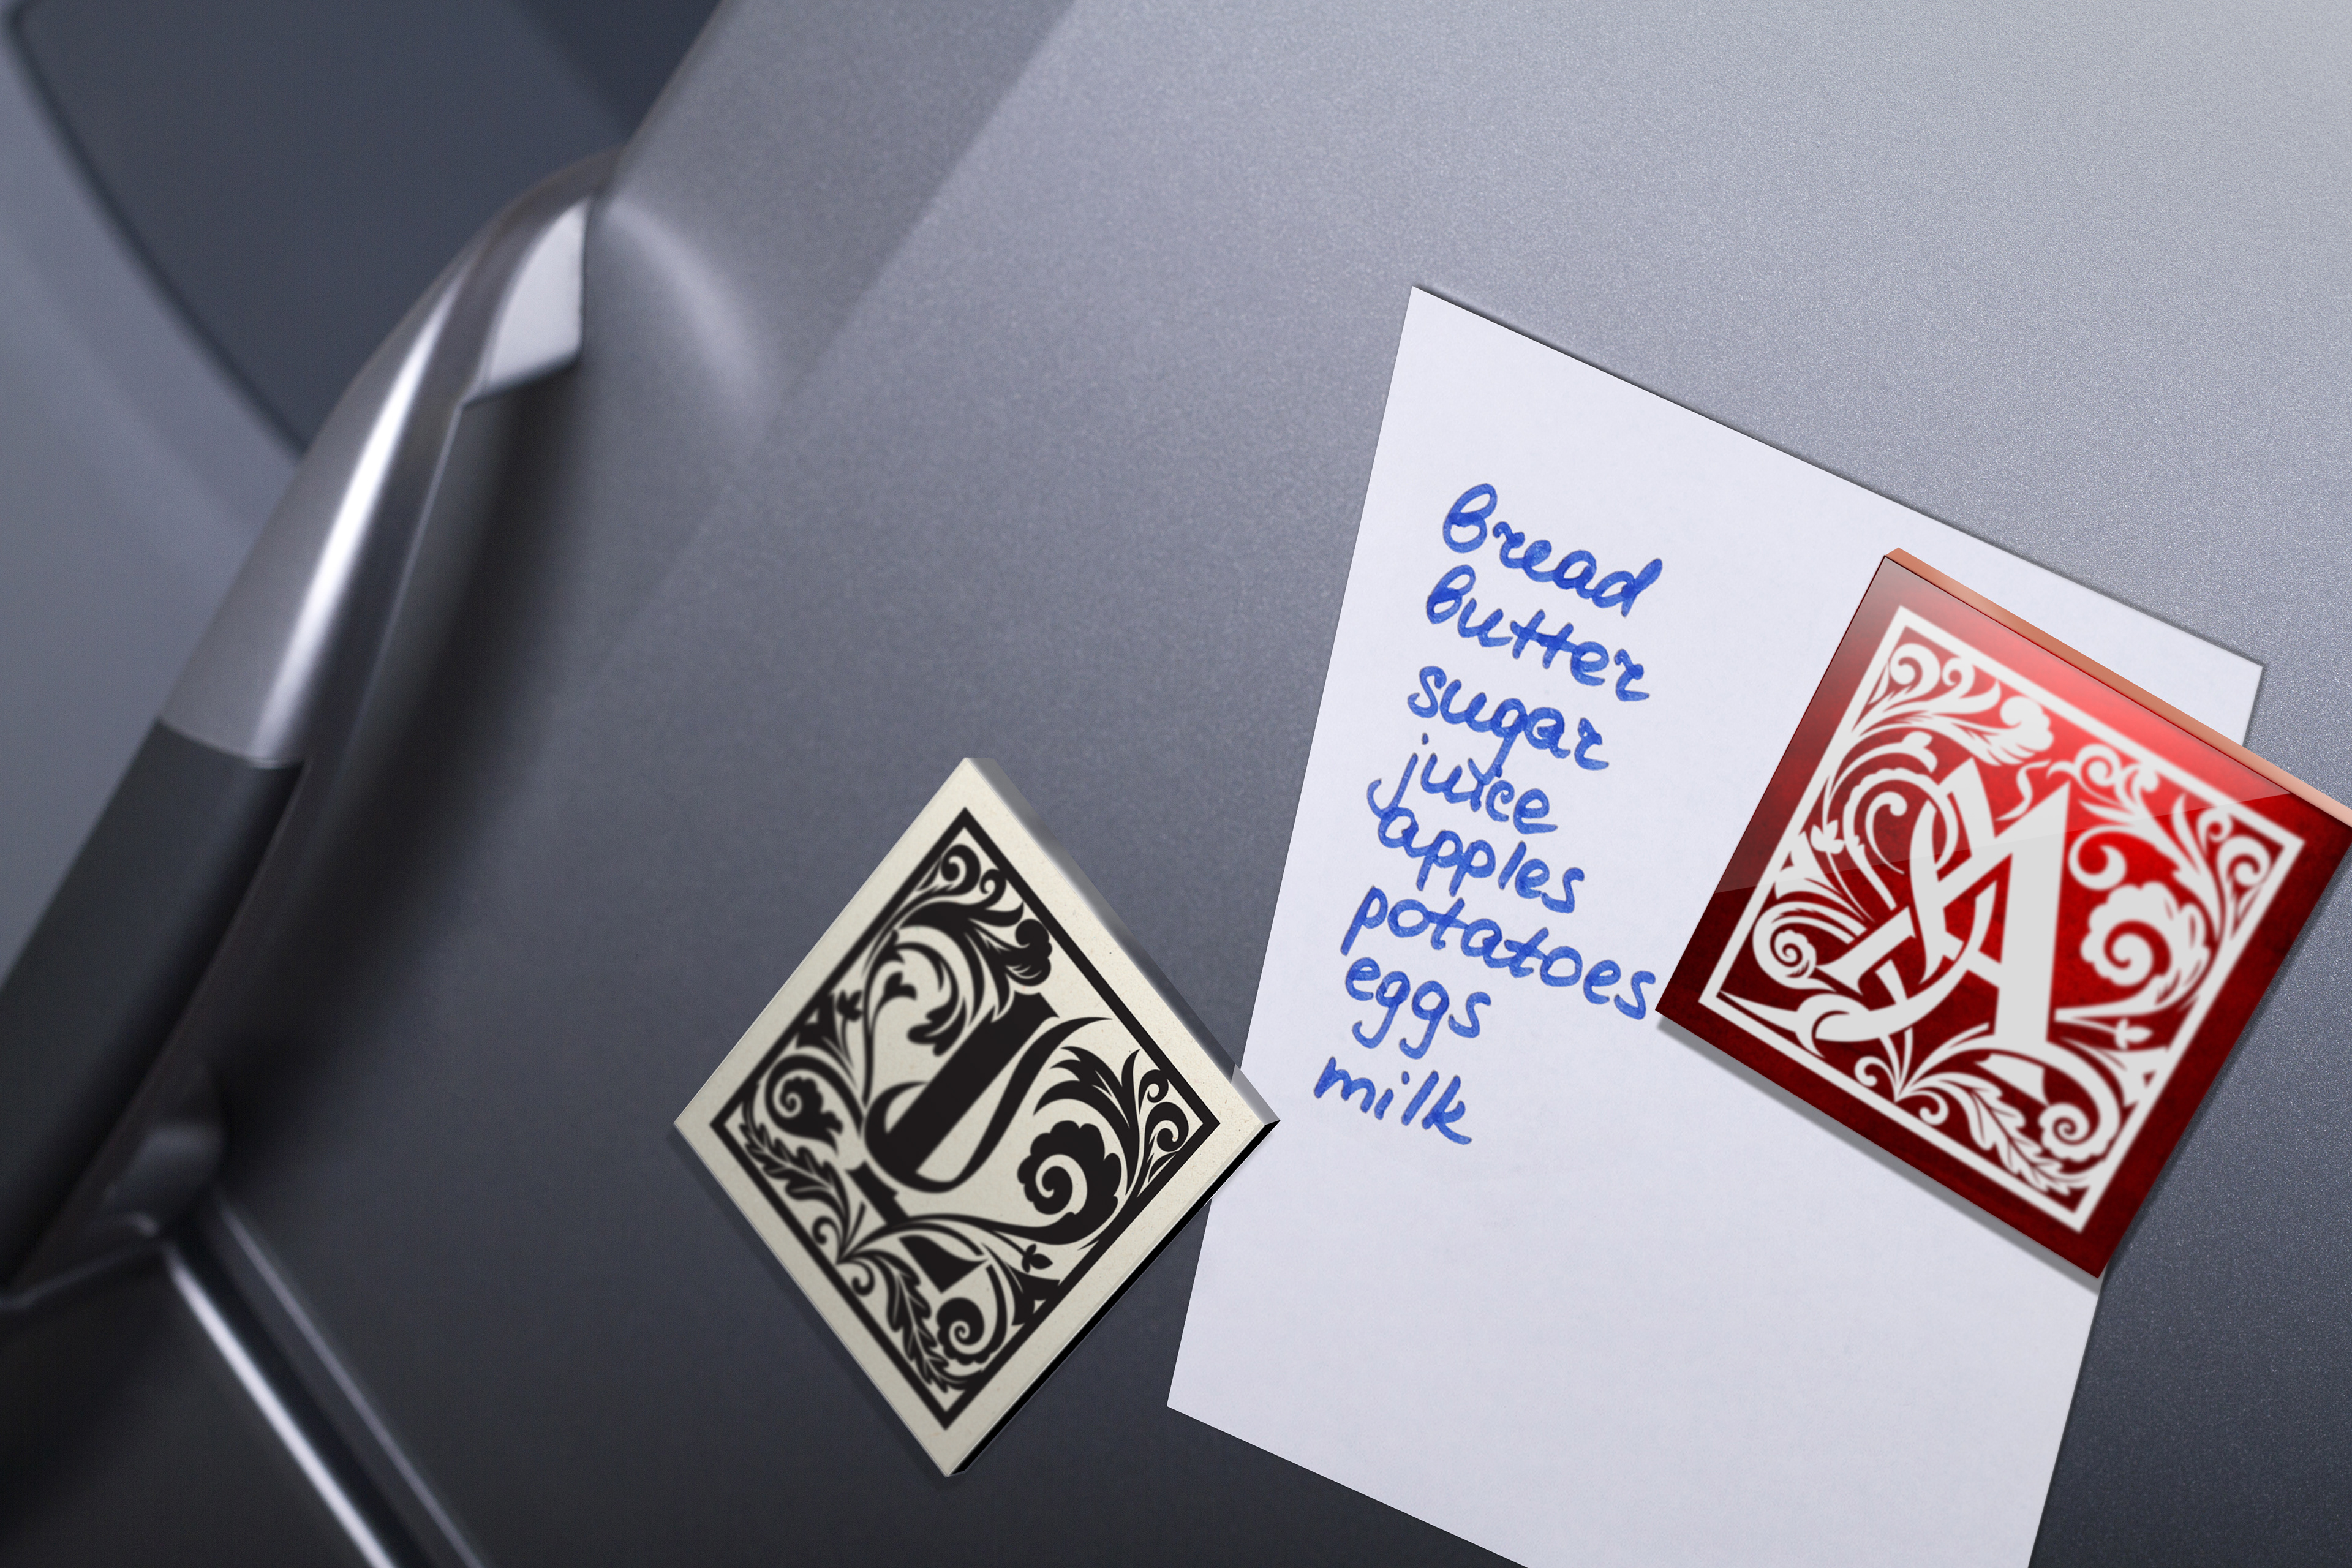 bread
butter
sugar
juice
apples
potatoes
eggs
milk
A